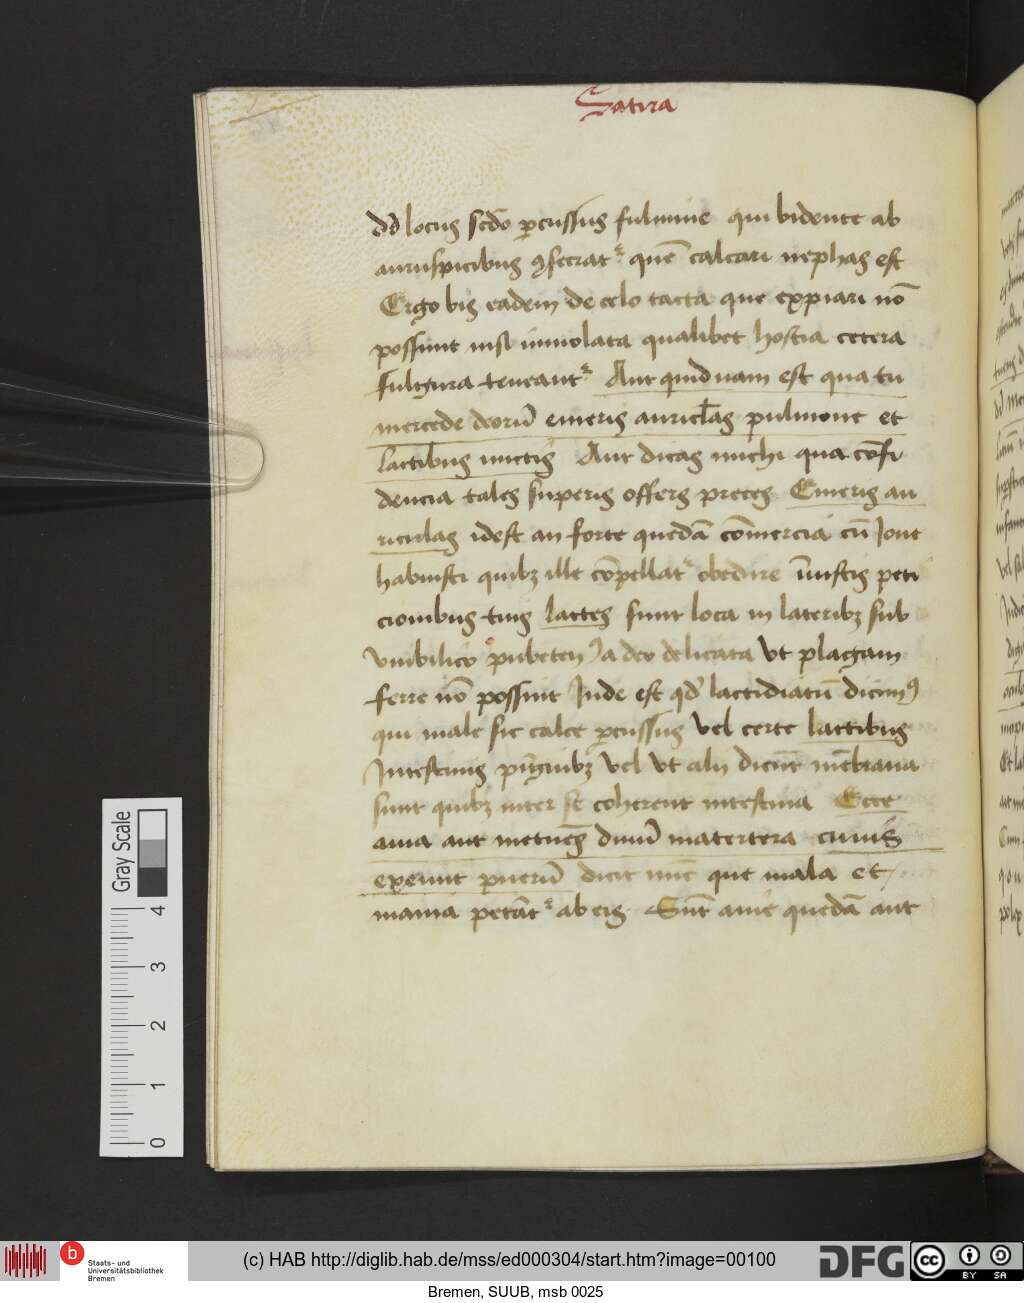 Satira
dd locus scdo percussus fulmine qui bidente ab
auruspicibus ꝯsecrat quē calcari nephas est
Ergo bis eadem de celo tacta que expiari nō
possunt nisi immolata qualibet hostia cetera
fulgura teneant Aut quidnam est qua tu
mercede deorū emeris auriclas pulmone et
lactibus unctis Aut dicas michi qua confi
dencia tales superis offers preces Emeris au
riculas idest an forte quedā cōmercia cū Ioue
habuisti quibꝫ ille cōpellat obedire iniustis peti
cionibus tuis lactes sunt loca in lateribꝫ sub
vmbilico adeo delicata vt plagam
ferre nō possint Inde est qd lactidiatū dicimꝰ
qui male sic calce percussus vel certe lactibus
Intestinis vel vt alii dicūt mēbrana
sunt quibꝫ inter se coherent intestina Ecce
auia aut metuēs diuū matertera cunis
exemit puerū dicit nūc que mala et
mania petāt ab eis Sūt quedā aut
Gray Scale
4
3
2
1
0
b
Staats- und
Universitätsbibliothek
Bremen
(c) HAB http://diglib.hab.de/mss/ed000304/start.htm?image=00100
DFG
cc
BY SA
Bremen, SUUB, msb 0025